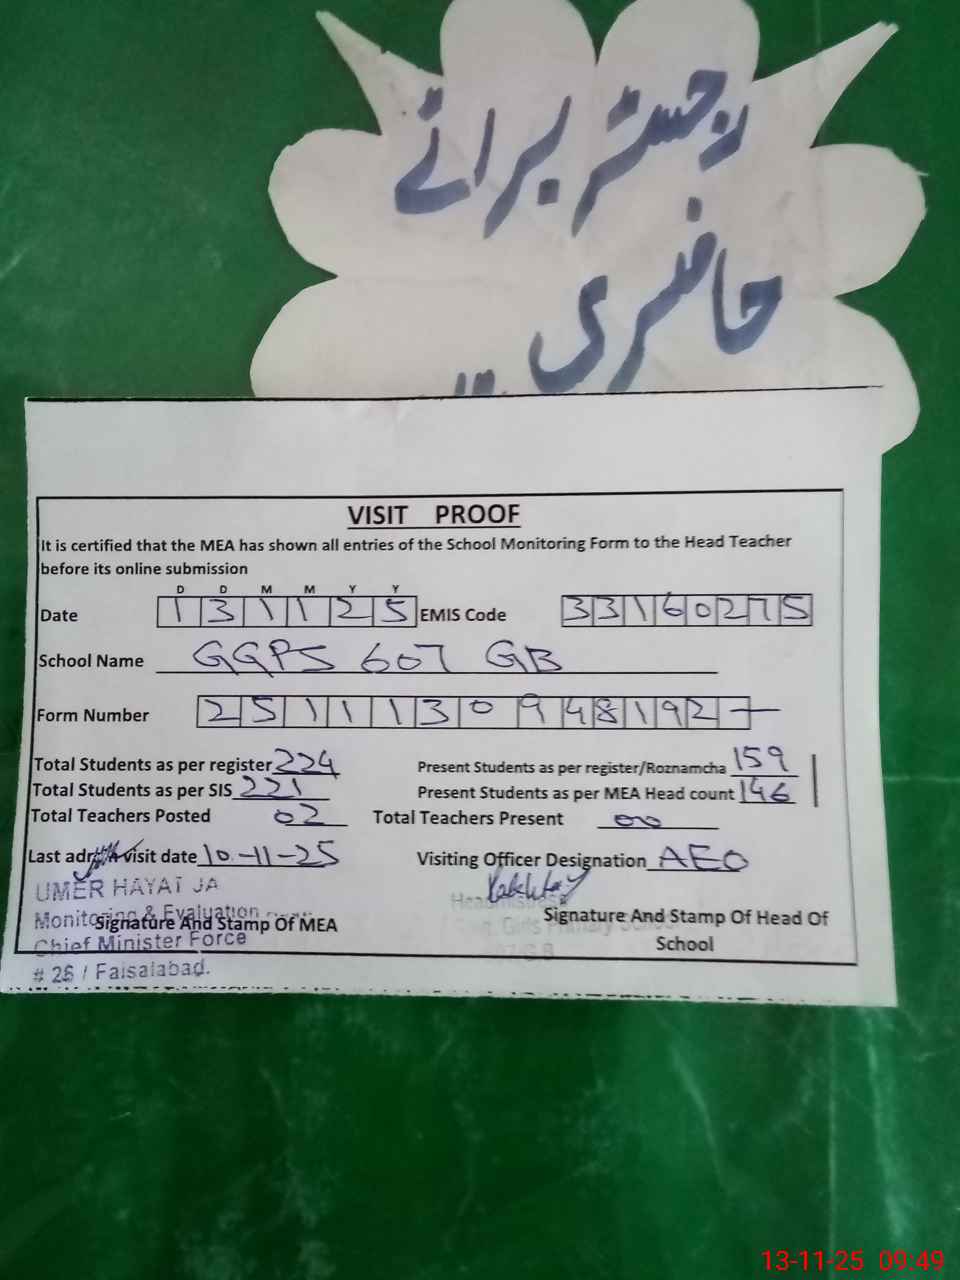 رجسٹر برائے
حاضری
VISIT PROOF
It is certified that the MEA has shown all entries of the School Monitoring Form to the Head Teacher
before its online submission
D D M M Y Y
Date 1 3 1 1 2 5 EMIS Code 3 3 1 6 0 2 7 5
School Name GGPS 607 GB
Form Number 2 5 1 1 1 3 0 9 4 8 1 9 2 –
Total Students as per register 224 Present Students as per register/Roznamcha 159
Total Students as per SIS 221 Present Students as per MEA Head count 146
Total Teachers Posted 02 Total Teachers Present 00
Last admn visit date 10-11-25 Visiting Officer Designation AEO
UMER HAYAT JA
Monitoring & Evaluation
Signature And Stamp Of MEA
Chief Minister Force
# 26 / Faisalabad.
Headmistress
Govt. Girls Primary School
Signature And Stamp Of Head Of
School
13-11-25 09:49